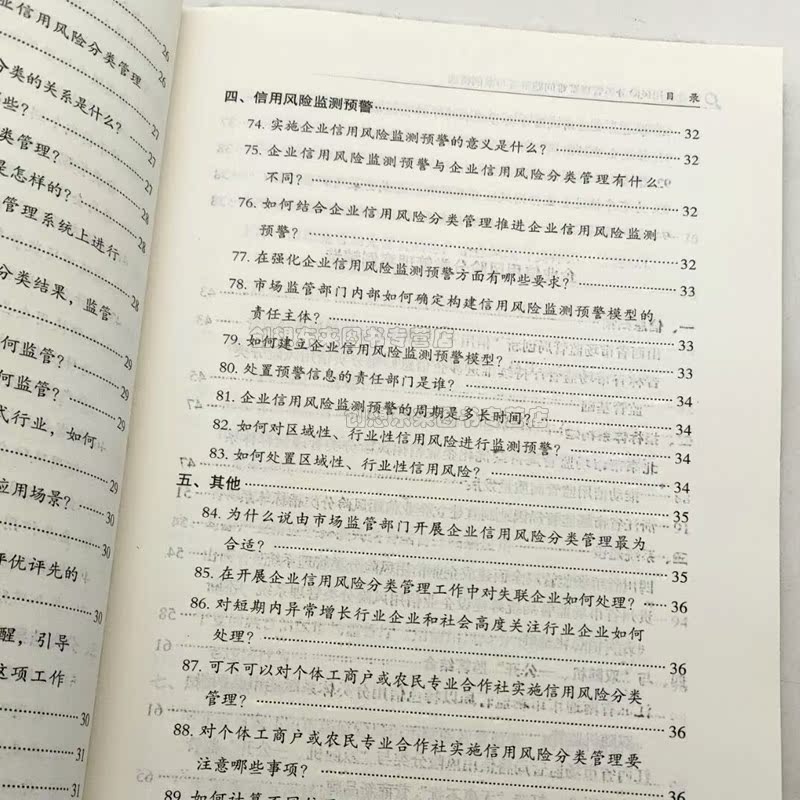 26
企业信用风险分类管理
26
分类的关系是什么?
27
些?
27
管理?
27
是怎样的?
28
管理系统上进行
28
分类结果,监管
28
何监管?
29
何监管?
29
式行业,如何
29
应用场景?
30
30
评优评先的
30
醒,引导
这项工作
30
31
31
目 录
四、信用风险监测预警 32
74. 实施企业信用风险监测预警的意义是什么? 32
75. 企业信用风险监测预警与企业信用风险分类管理有什么
不同? 32
76. 如何结合企业信用风险分类管理推进企业信用风险监测
预警? 32
77. 在强化企业信用风险监测预警方面有哪些要求? 33
78. 市场监管部门内部如何确定构建信用风险监测预警模型的
责任主体? 33
79. 如何建立企业信用风险监测预警模型? 33
80. 处置预警信息的责任部门是谁? 34
81. 企业信用风险监测预警的周期是多长时间? 34
82. 如何对区域性、行业性信用风险进行监测预警? 34
83. 如何处置区域性、行业性信用风险? 34
五、其他 35
84. 为什么说由市场监管部门开展企业信用风险分类管理最为
合适? 35
85. 在开展企业信用风险分类管理工作中对失联企业如何处理? 36
86. 对短期内异常增长行业企业和社会高度关注行业企业如何
处理? 36
87. 可不可以对个体工商户或农民专业合作社实施信用风险分类
管理? 36
88. 对个体工商户或农民专业合作社实施信用风险分类管理要
注意哪些事项? 36